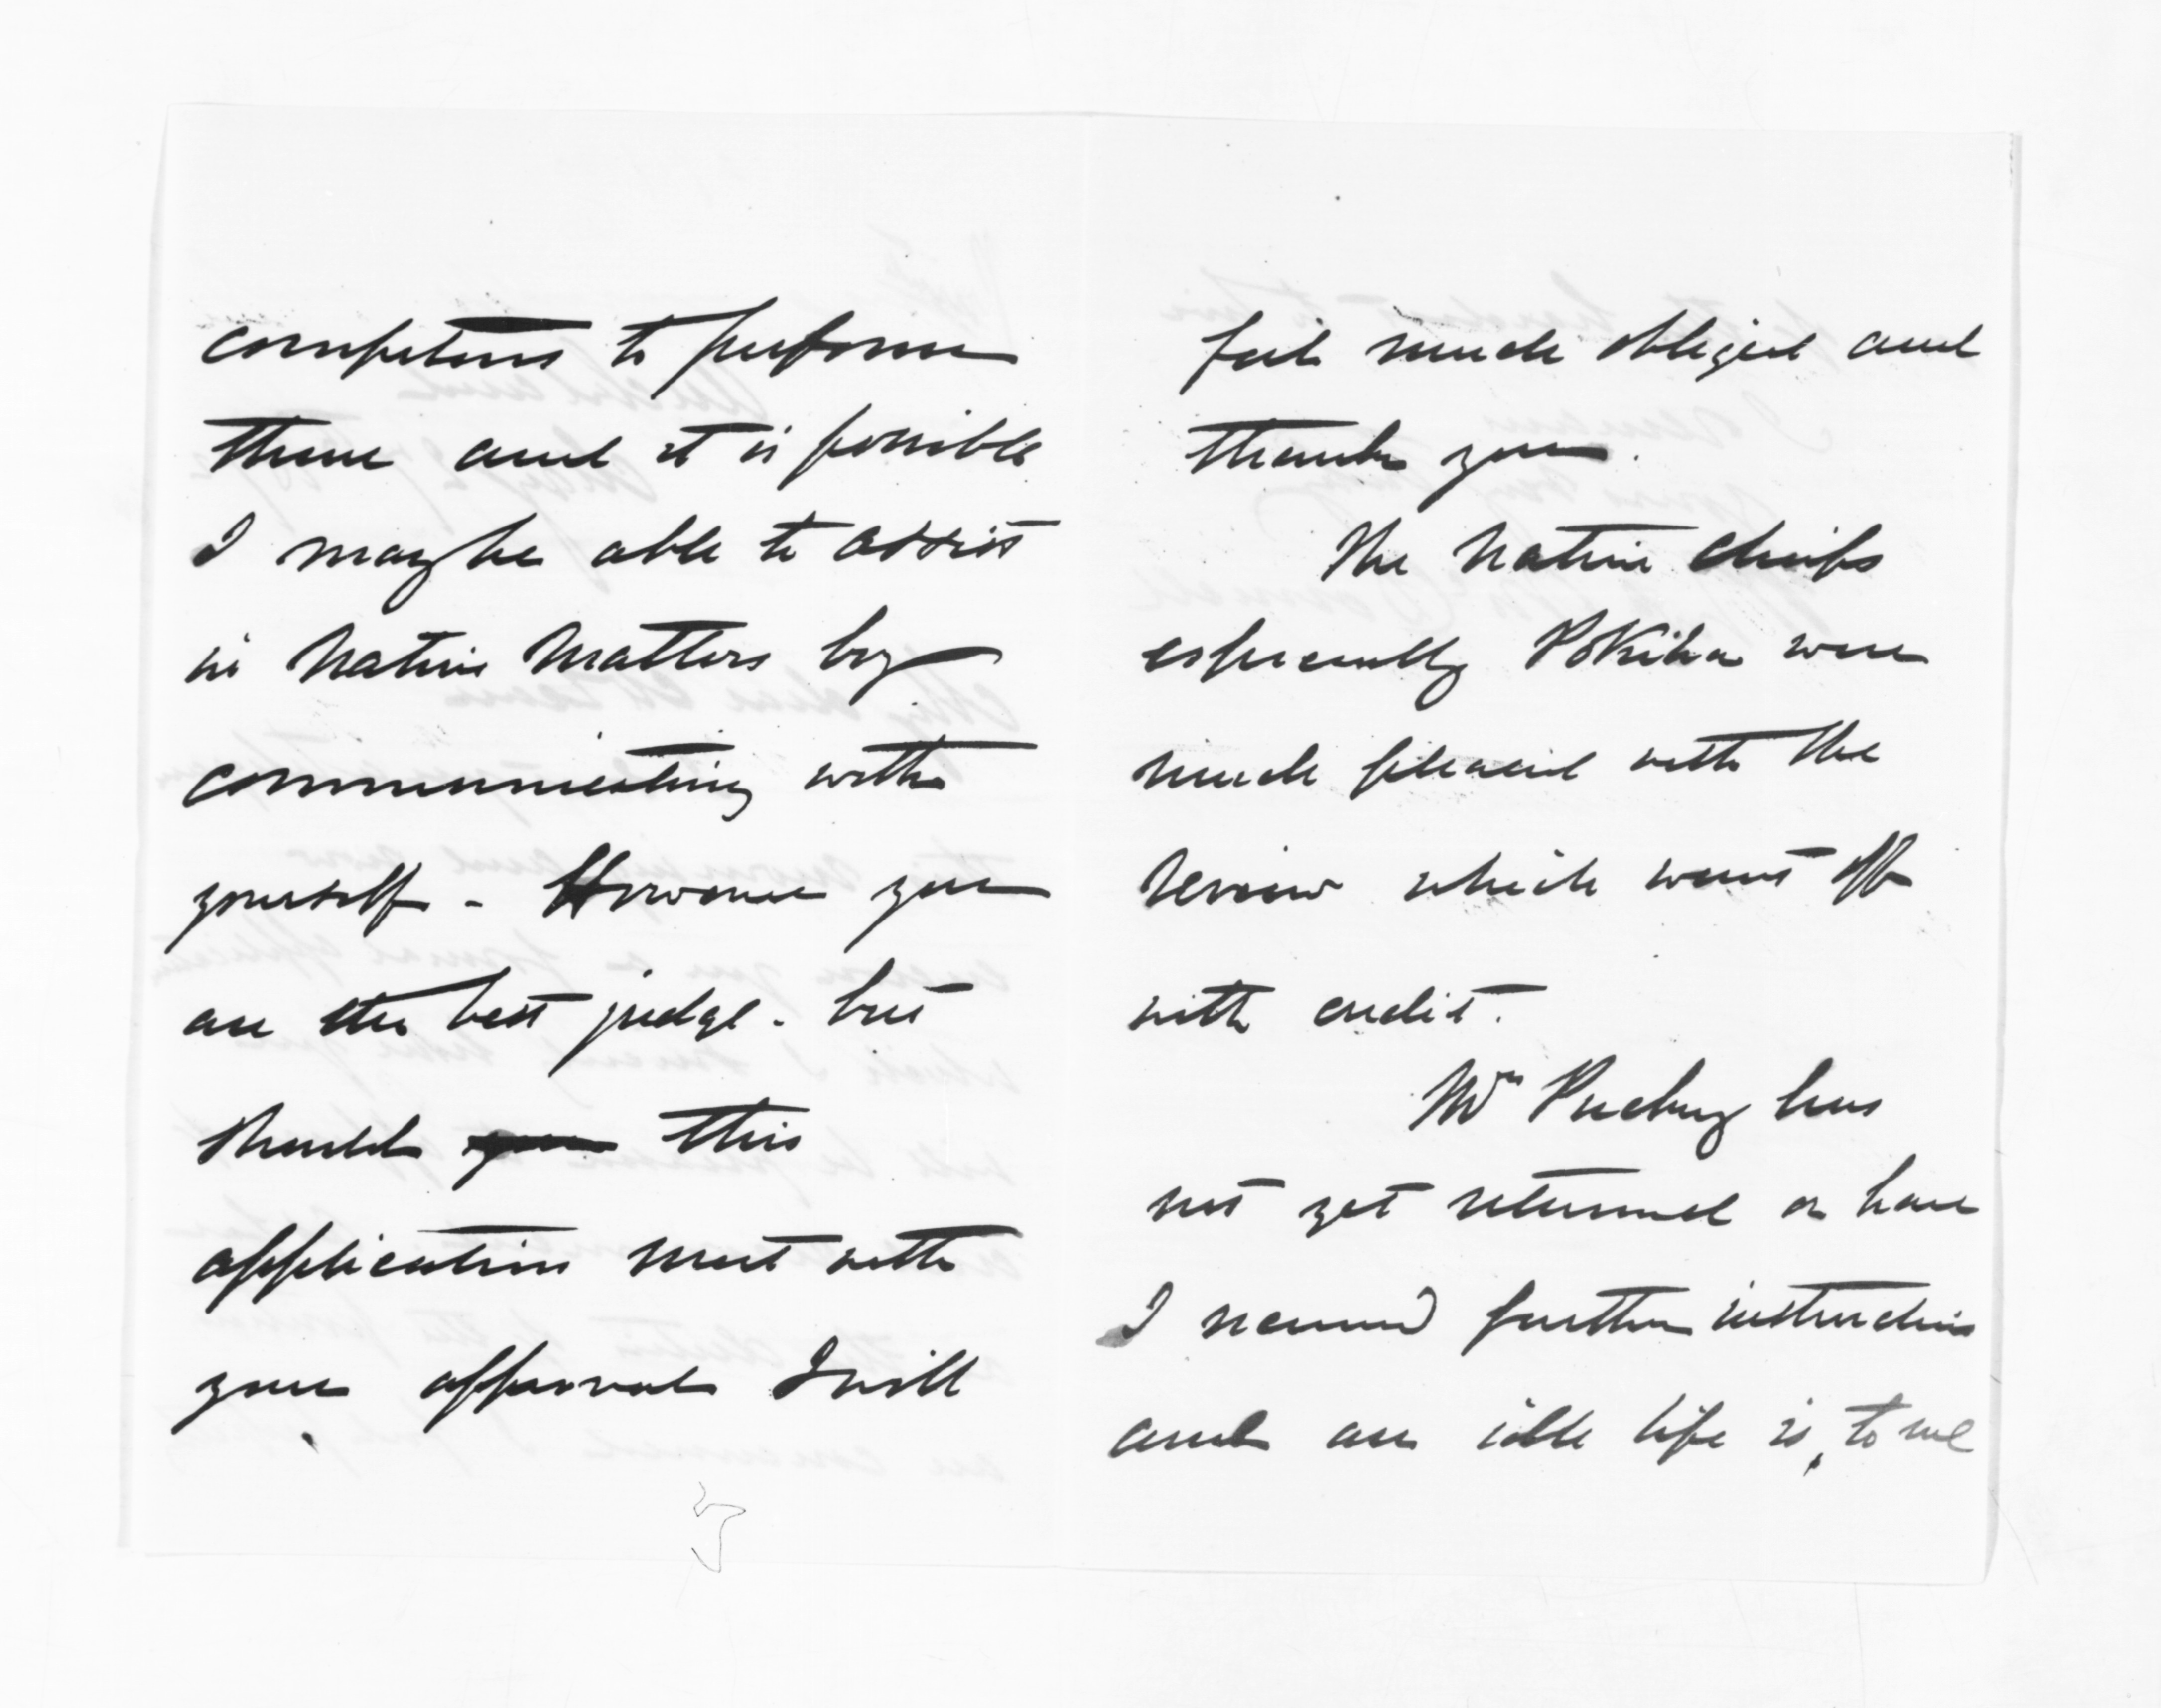 competent to perform
them and it is possible
I may be able to assist
in Native Matters by
communicating with
yourself - However you
are the best judge - but
should you this
application meet with
your approval I will
feel much obliged and
thank you.
The Native Chiefs
especially Pokiha were
much pleased with the
review which went off
with credit.
Mrs
has
not yet returned or have
I received further instructions
and an idle life is, to me
5